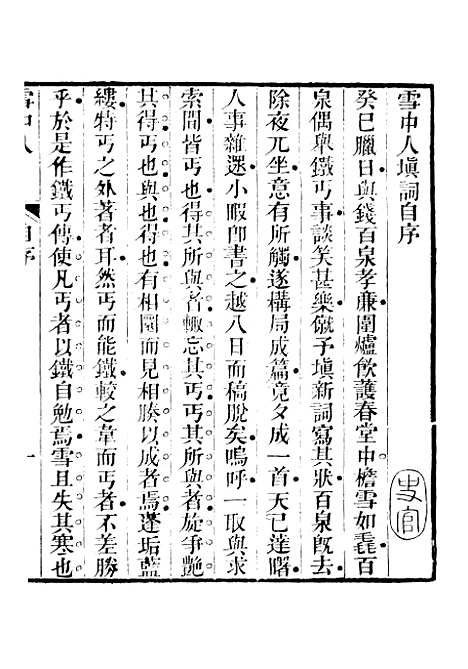 雪中人塡詞自序
癸巳臘日與錢百泉孝亷圍爐飲護春堂中檐雪如毳百
泉偶舉鐵丐事談笑甚樂僦予塡新詞寫其狀百泉旣去
除夜兀坐意有所觸遂構局成篇竟夕成一首天已達曙
人事雜遝小暇卽書之越八日而稿脫矣嗚呼一取與求
索間皆丐也得其所與者輒忘其丐丐其所與者旋爭艷
其得丐也與也得也有相圜而見相勝以成者焉蓬垢藍
縷特丐之外著者耳然丐而能鐵較之韋而丐者不差勝
乎於是作鐵丐傳使凡丐者以鐵自勉焉雪且失其寒也
雪中人 自序 一
史官